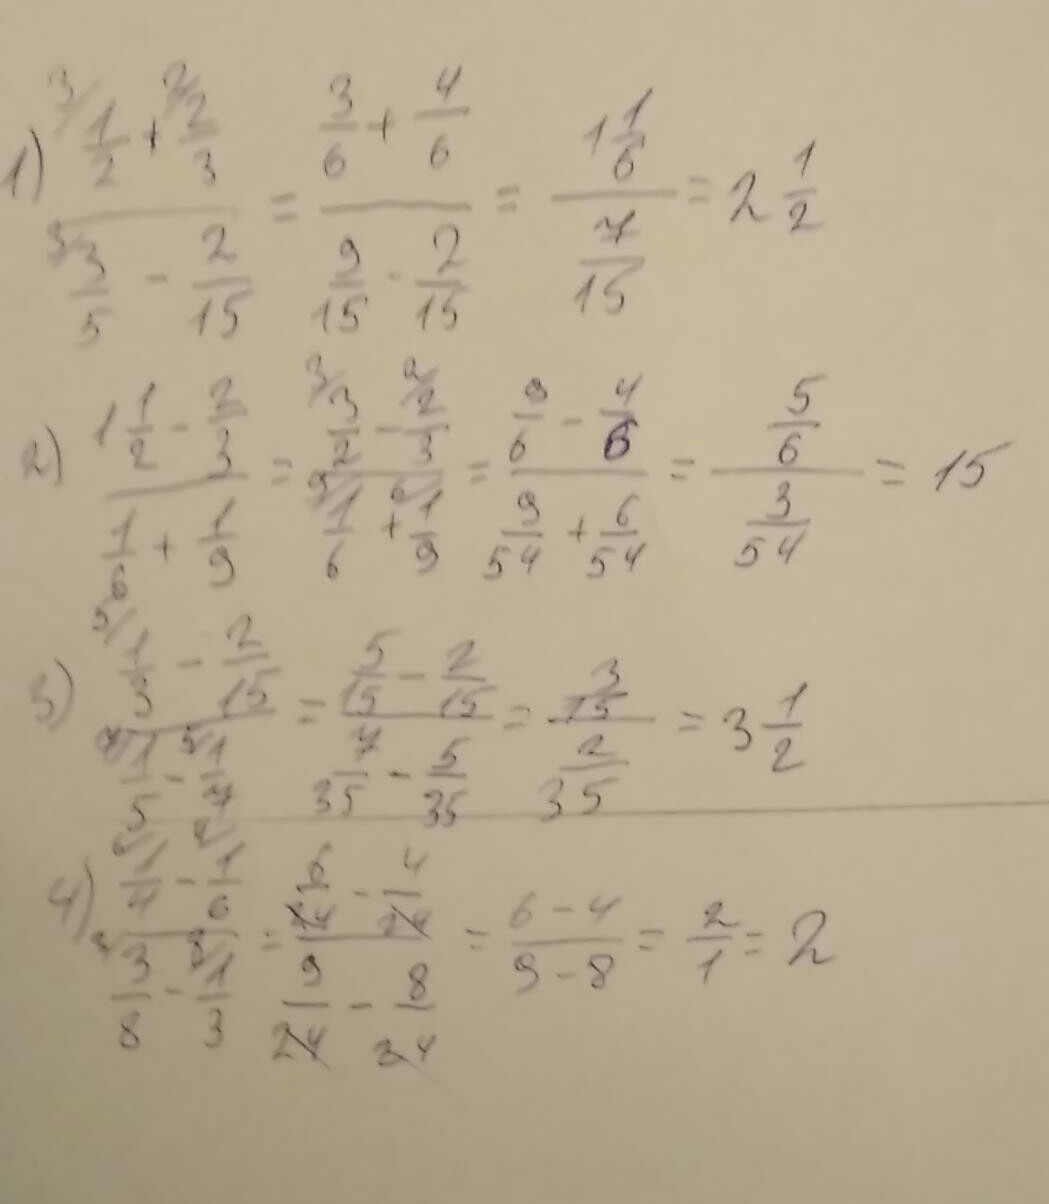 1) (1/2 + 2/3) / (3/5 - 2/15) = (3/6 + 4/6) / (9/15 - 2/15) = (1 1/6) / (7/15) = 2 1/2
2) (1 1/2 - 2/3) / (1/6 + 1/9) = (3/2 - 2/3) / (1/6 + 1/9) = (9/6 - 4/6) / (9/54 + 6/54) = (5/6) / (3/54) = 15
3) (1/3 - 2/15) / (1/5 - 1/7) = (5/15 - 2/15) / (7/35 - 5/35) = (3/15) / (2/35) = 3 1/2
4) (1/4 - 1/6) / (3/8 - 1/3) = (6/24 - 4/24) / (9/24 - 8/34) = (6 - 4) / (9 - 8) = 2/1 = 2